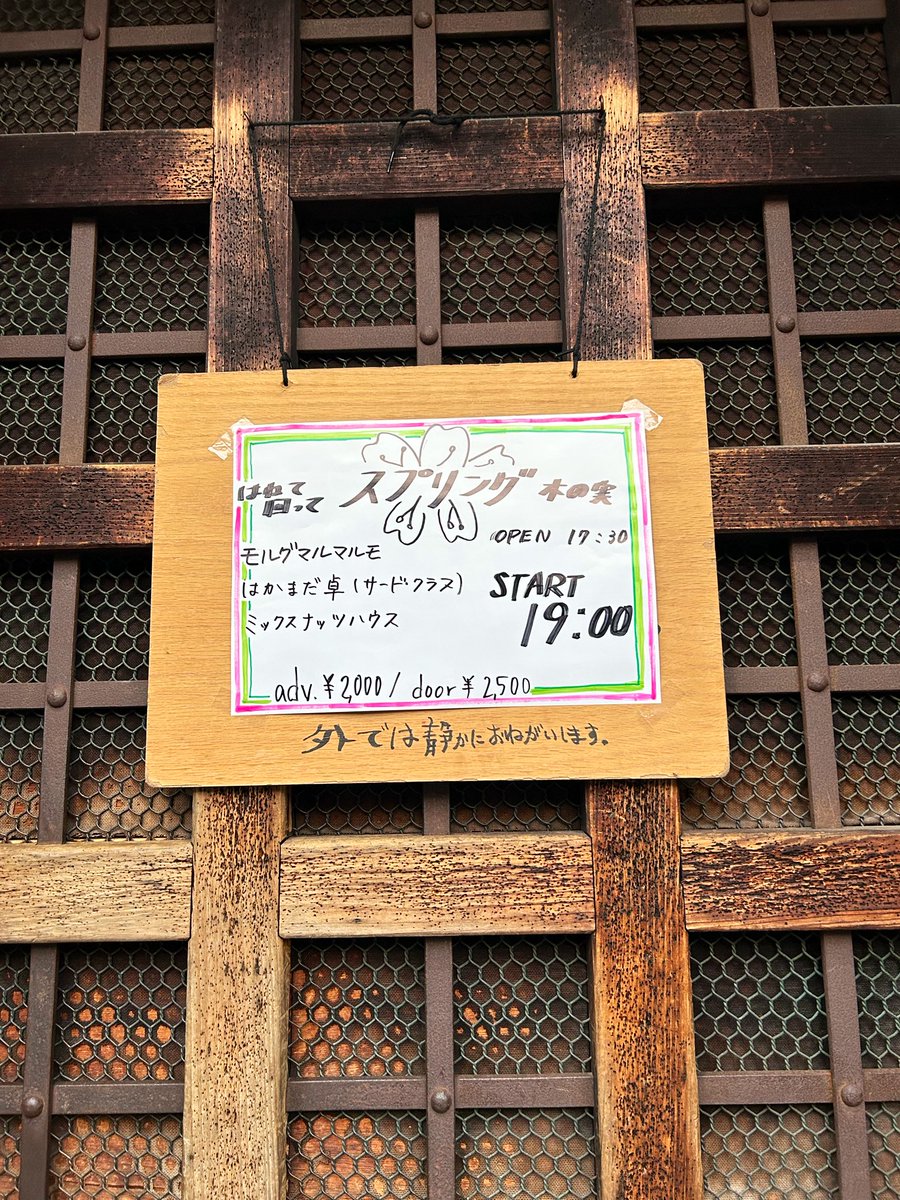 スプリング 木の実
OPEN 17:30
モルグマルマルモ
はかまだ卓(サードクラス)
START
ミックスナッツハウス
19:00
adv.¥2,000/ door¥2,500
外では静かにおねがいします。